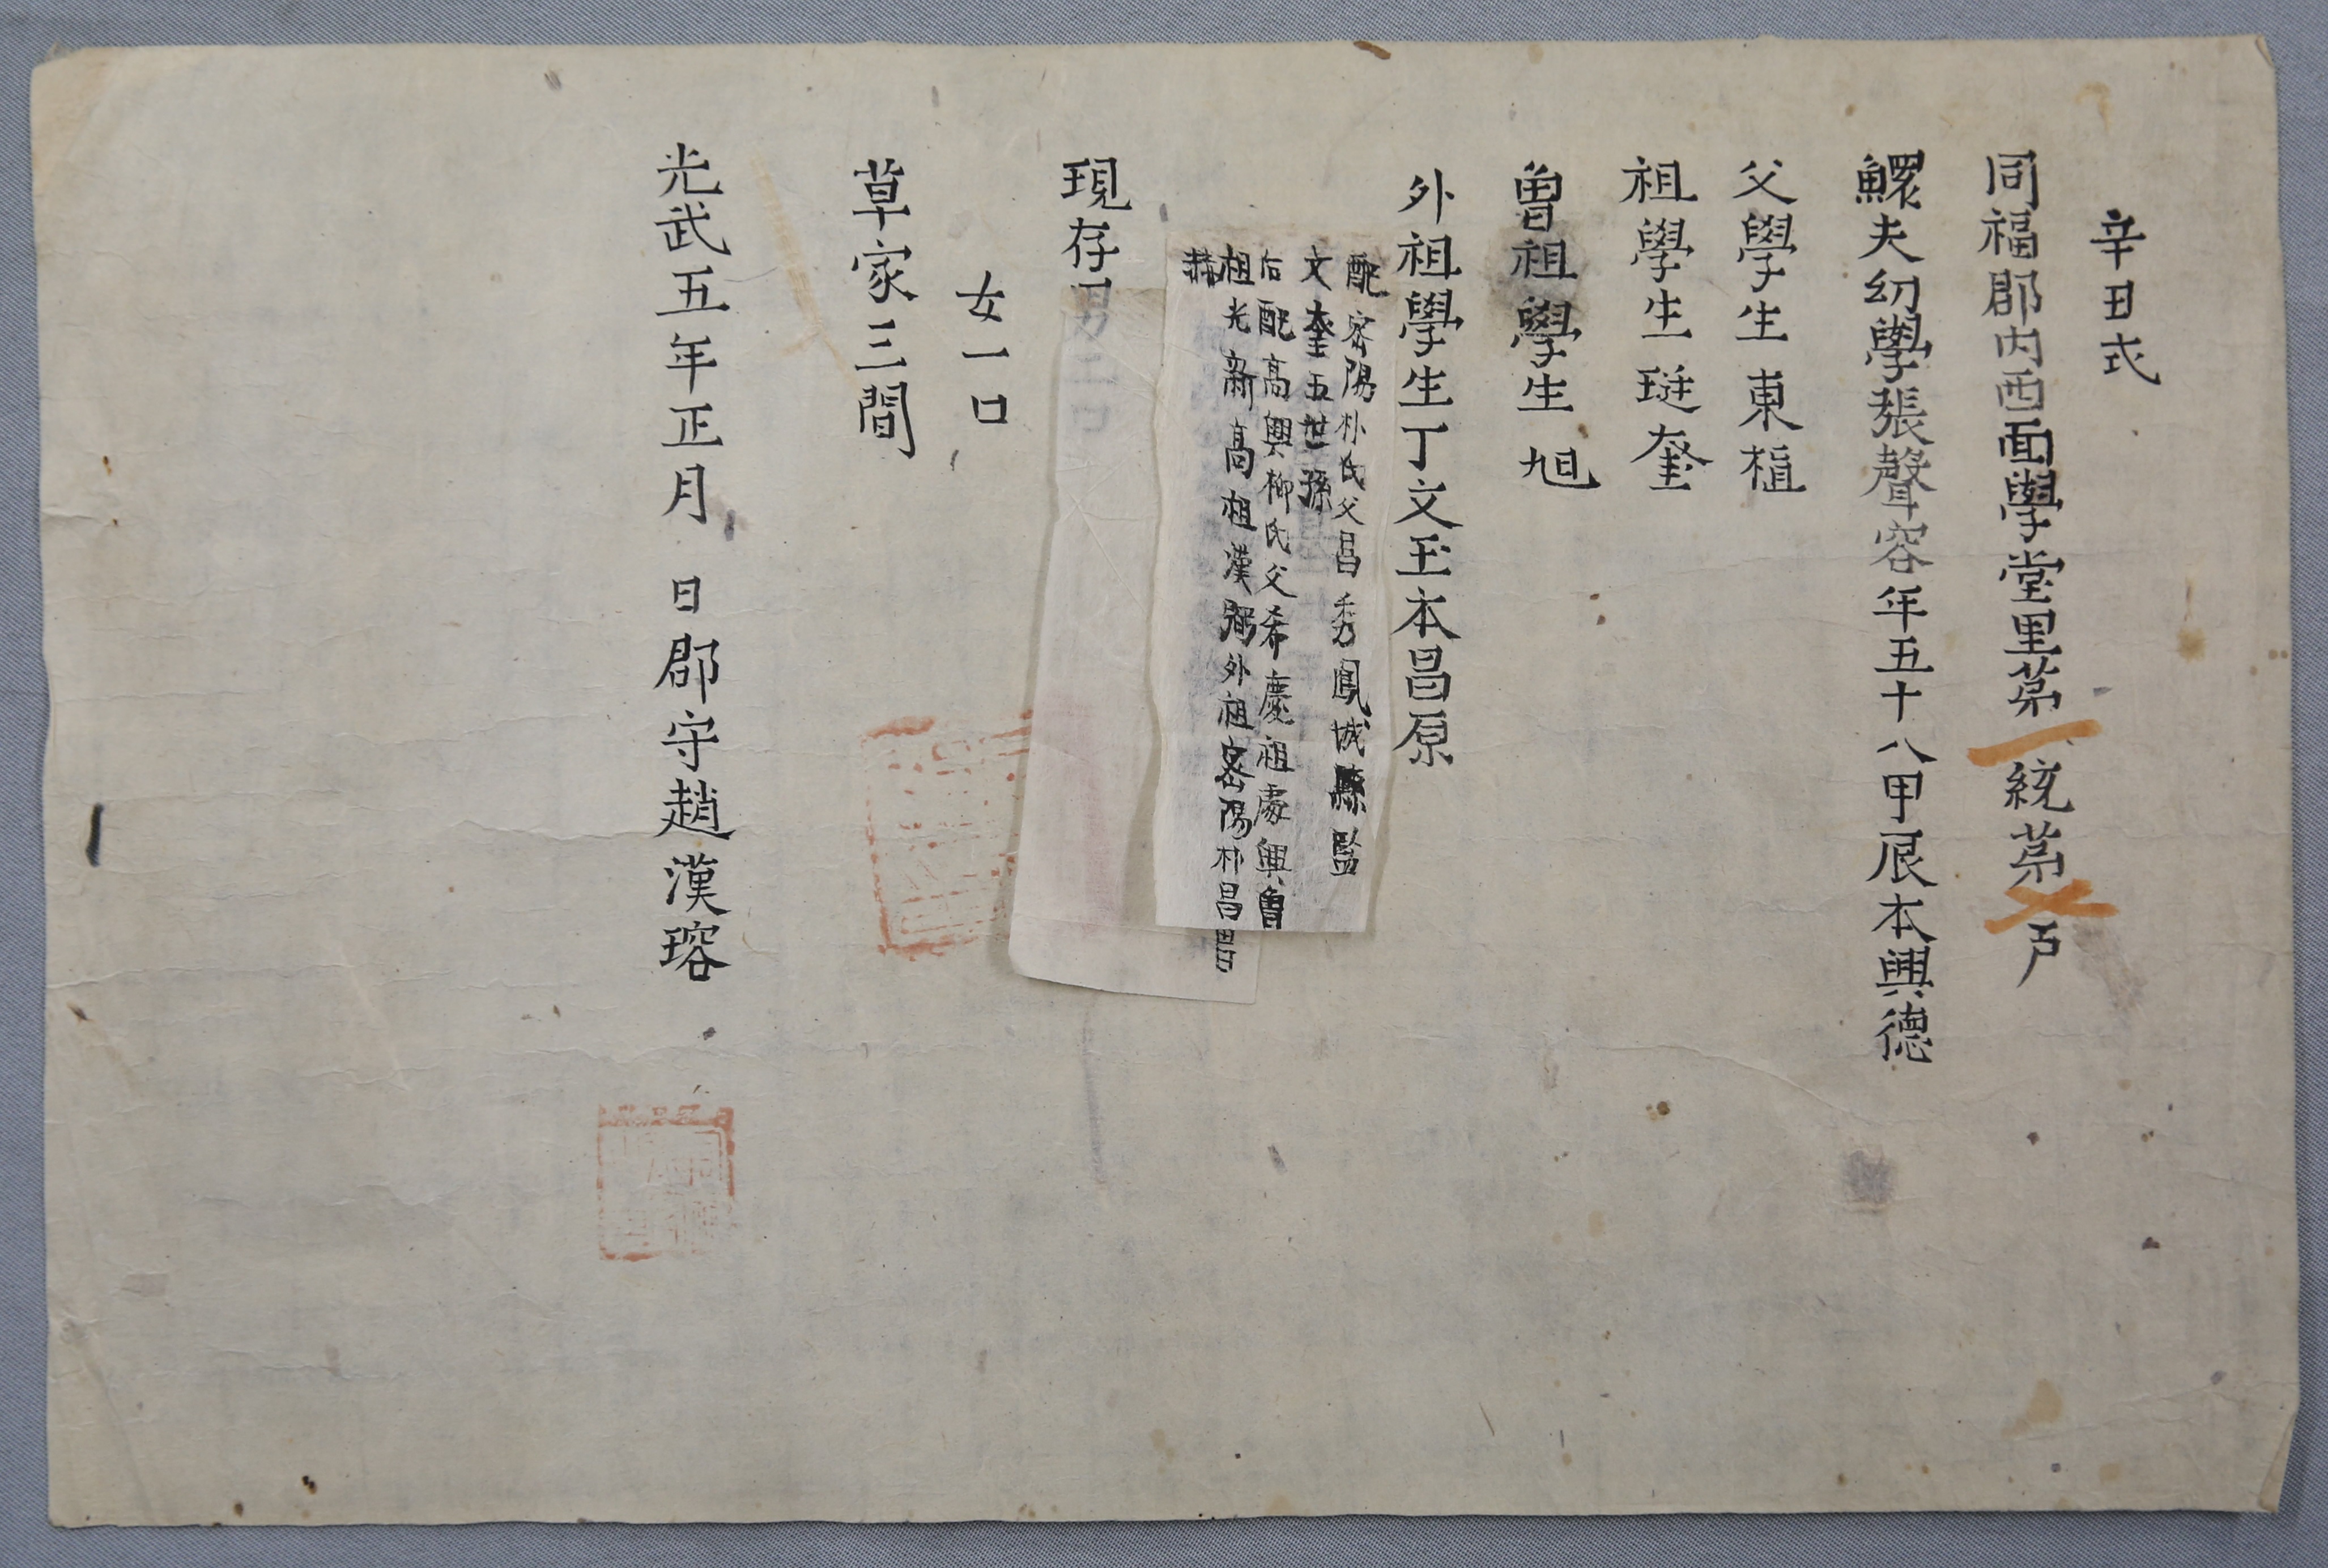 辛丑式
同福郡內西面學堂里苐一統苐 戶
鰥夫幼學張聲容年五十八甲辰本興德
父學生東植
祖學生珽奎
曾祖學生旭
外祖學生丁文玉本昌原
配密陽朴氏父昌秀鳳城縣監
文奎五世孫
后配高興柳氏父希慶祖處興曾
祖光新高祖漢弼外祖密陽朴昌
現存男二口
女一口
草家三間
光武五年正月 日郡守趙漢瑢